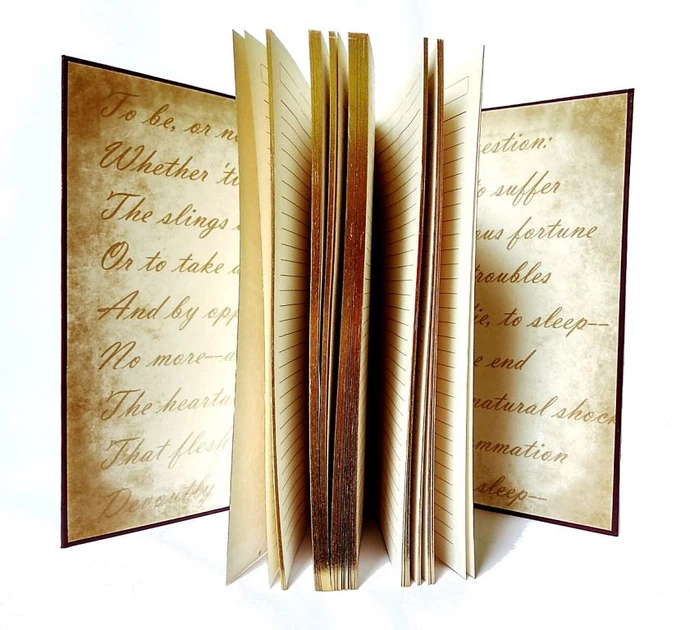 To be, or n
Whether 'ti
The slings
Or to take a
And by opp
No more—a
The hearta
That flesh
Devoutly
estion:
to suffer
ous fortune
troubles
ie, to sleep—
e end
natural shock
mmation
sleep—